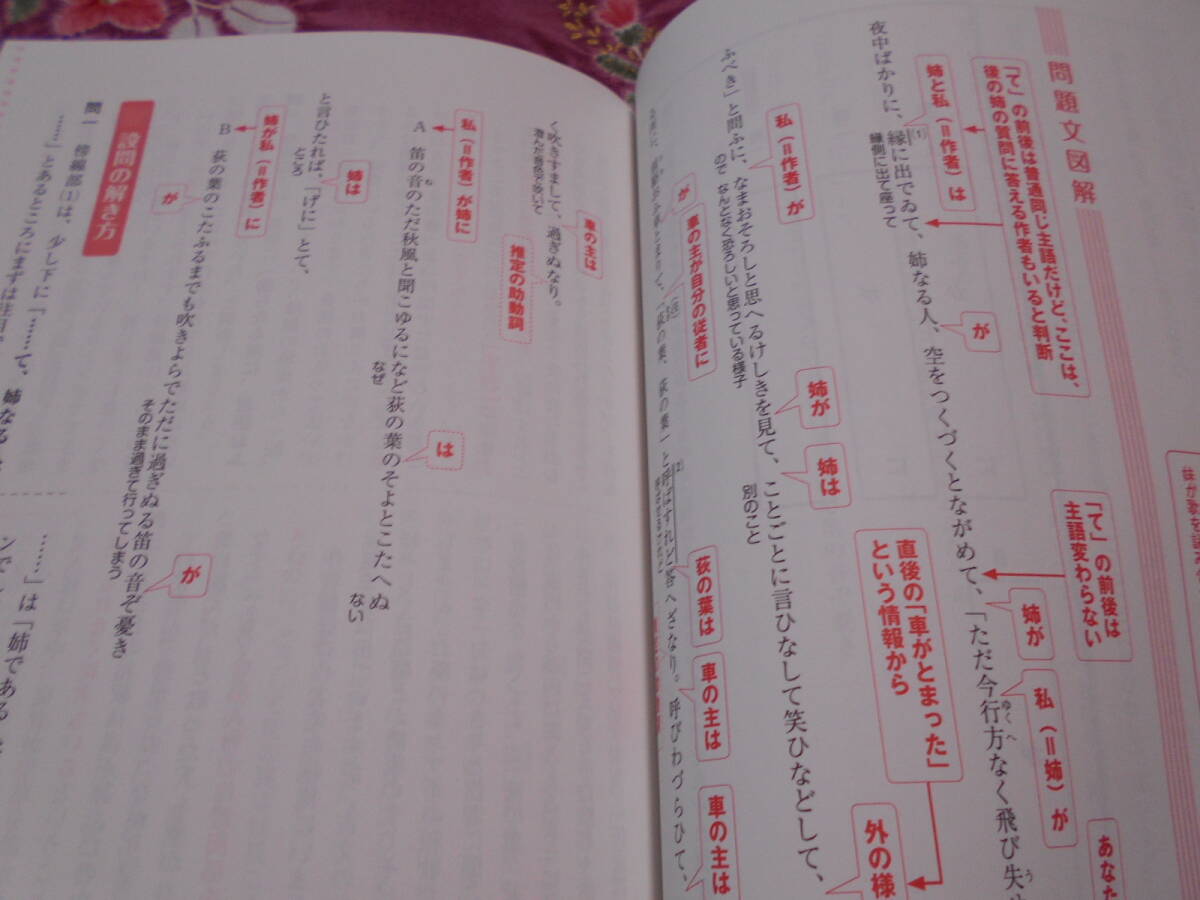 問題文図解
「て」の前後は普通同じ主語だけど、ここは、
後の姉の質問に答える作者もいると判断
「て」の前後は
主語変わらない
姉と私(=作者)は
が
姉が
私(=姉)が
あなた
夜中ばかりに、縁に出でゐて、姉なる人、空をつくづくとながめて、「ただ今行方なく飛び失せ
(1)
ゆくへ
う
縁側に出て座って
直後の「車がとまった」
という情報から
外の様
私(=作者)が
姉が
姉は
ふべき」と問ふに、なまおそろしと思へるけしきを見て、ことごとに言ひなして笑ひなどして、
ので なんとなく恐ろしいと思っている様子
別のこと
が
車の主が自分の従者に
荻の葉は
車の主は
車の主は
「荻の葉、荻の葉」と呼ばすれど答へざなり。呼びわづらひて、
(2)
車の主は
推定の助動詞
く吹きすまして、過ぎぬなり。
澄んだ音色で吹いて
私(=作者)が姉に
は
A 笛の音のただ秋風と聞こゆるになど荻の葉のそよとこたへぬ
も
なぜ
ない
姉は
と言ひたれば、「げに」とて、
ところ
姉が私(=作者)に
が
が
B 荻の葉のこたふるまでも吹きよらでただに過ぎぬる笛の音ぞ憂き
そのまま過ぎて行ってしまう
設問の解き方
問一 傍線部(1)は、少し下に「……て、姉なる
……」とあるところにまずは注目。
……」は「姉である